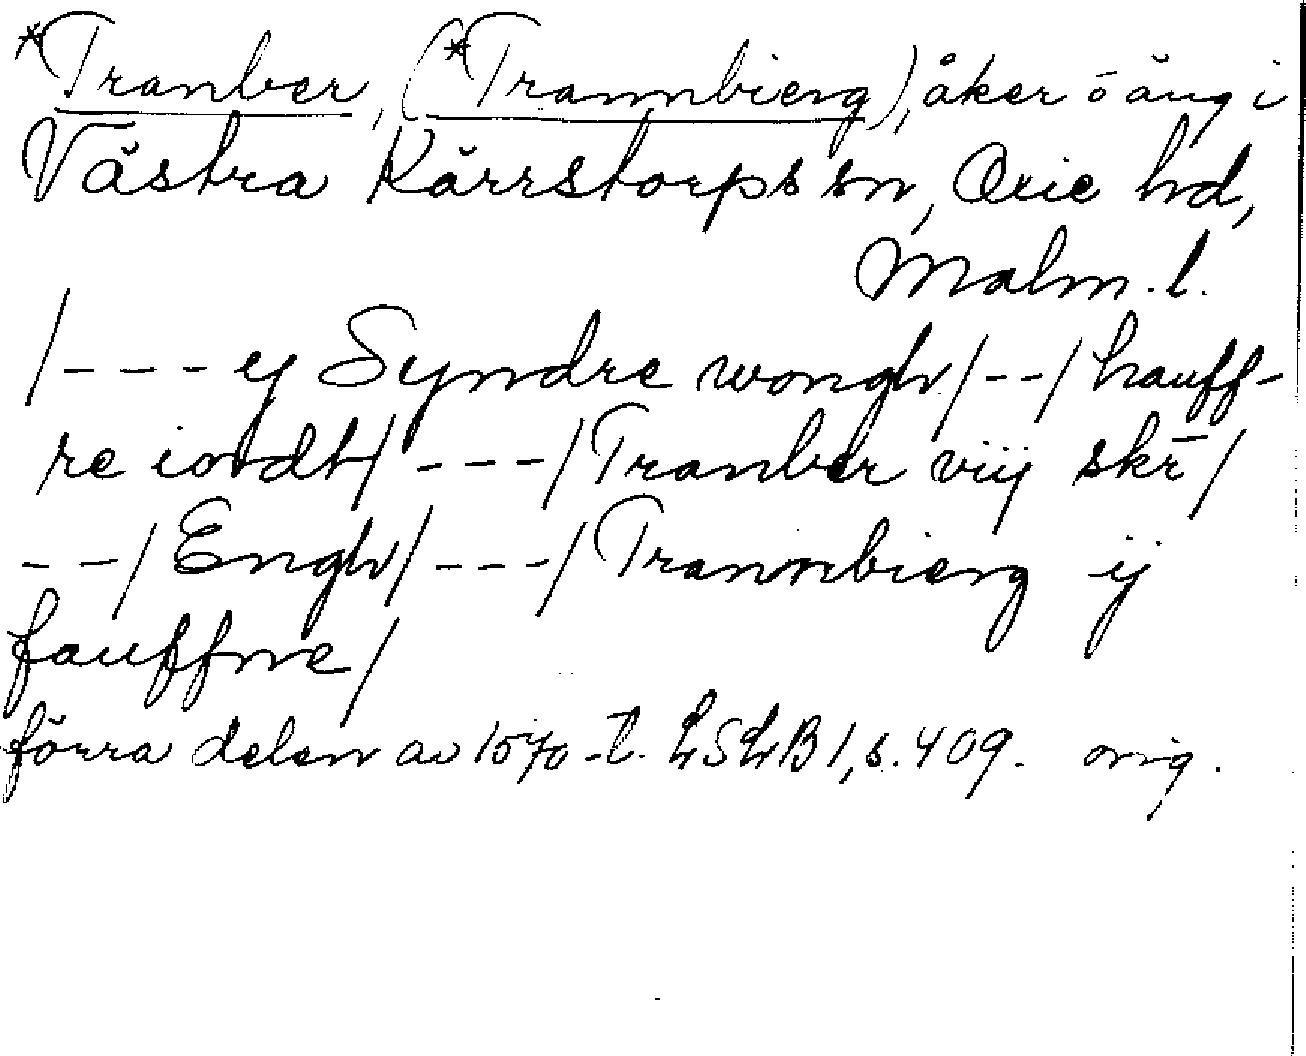 *Tranber, (*Trannbierg), åker o äng i
Västra Kärrstorps sn, Oxie hd,
Malm. l.
/---ej Syndre wongh/--/hauff-
re iordt/---/Tranber viij skr̄/
--/Engh/---/Trannbierg ij
fauffne/
förra delen av 1570-t. LSLB 1, s. 409. orig.